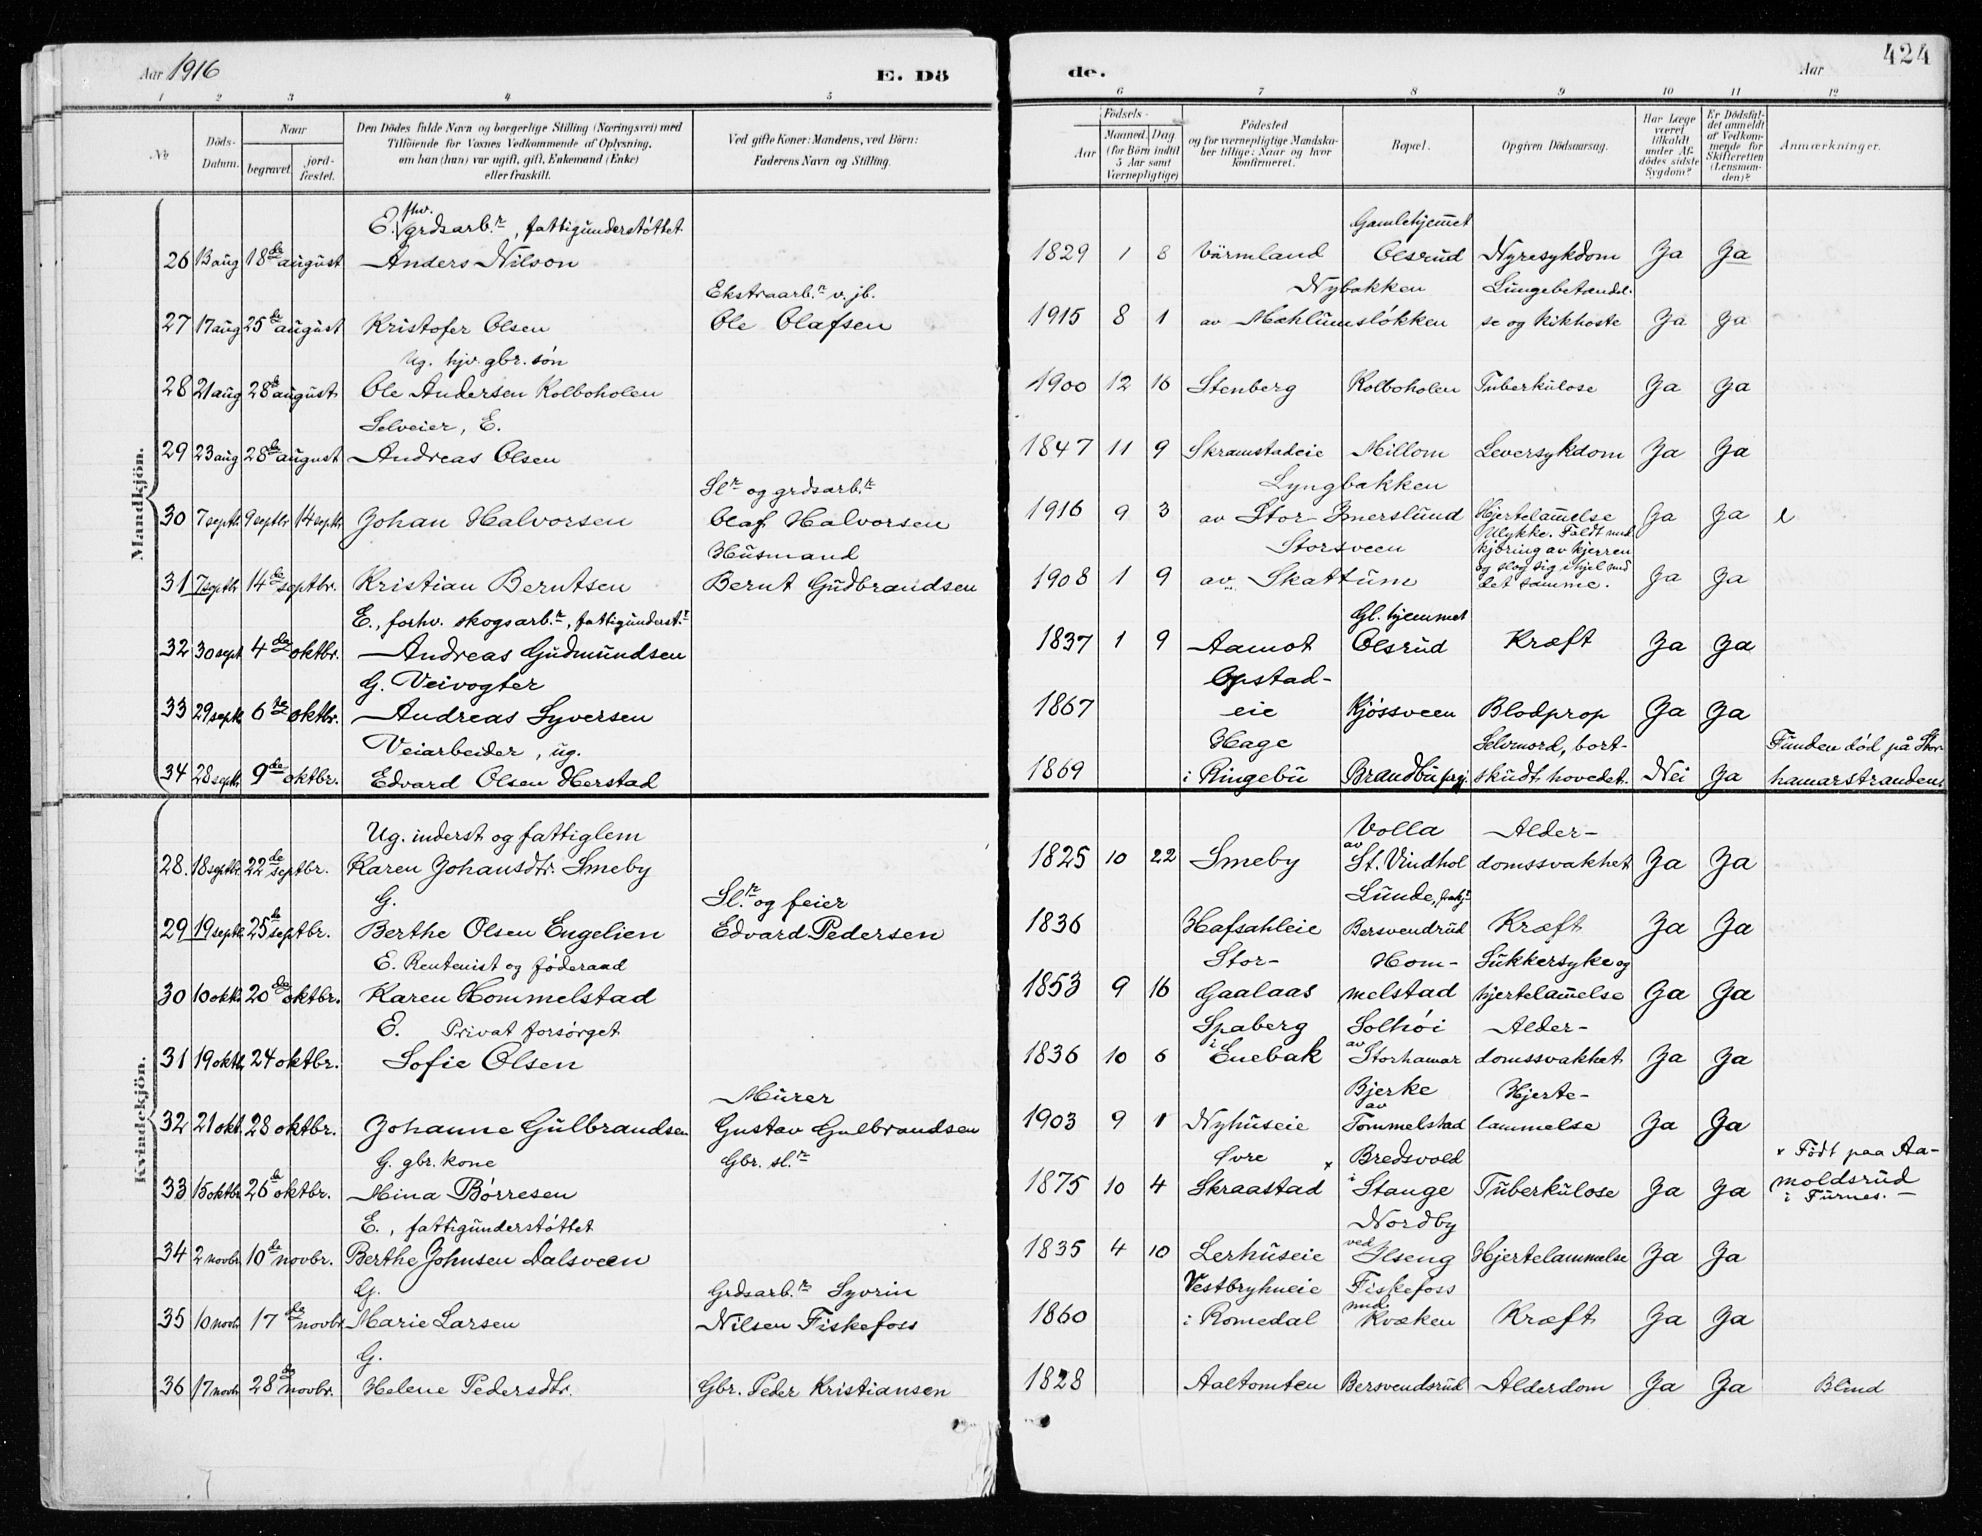 424
Aar 1916
E. Dö
de.
Aar
1 2 3 4 5
6 7 8 9 10 11 12
No
Döds-
Datum.
Naar
begravet.
jord-
fæstet.
Den Dödes fulde Navn og borgerlige Stilling (Næringsvei) med
Tilföiende for Voxnes Vedkommende af Oplysning,
om han (hun) var ugift, gift, Enkemand (Enke)
eller fraskilt.
Ved gifte Koner: Mandens, ved Börn:
Faderens Navn og Stilling.
Födsels-
Aar
Maaned.
Dag
(for Börn indtil
5 Aar samt
Værnepligtige)
Födested
og for værnepligtige Mandska-
ber tillige: Naar og hvor
konfirmeret.
Bopæl.
Opgiven Dödsaarsag.
Har Læge
været
tilkaldt
under Af-
dödes sidste
Sygdom?
Er Dödsfal-
det anmeldt
af Vedkom-
mende for
Skifteretten
(Lensman-
den)?
Anmærkninger.
Mandkjön.
fhv.
E. grdsarb.r, fattigunderstöttet Gamlehjemet
26 13 aug 18de august Anders Nilson 1829 1 8 Värmland Olsrud Nyresykdom Ja Ja
Ekstraarb.r v. jb. Nybakken Lungebetændel-
27 17 aug 25de august Kristofer Olsen Ole Olafsen 1915 8 1 av Mæhlumsløkken se og kikhoste Ja Ja
Ug. hjv. gbr. søn
28 21 aug 28de august Ole Andersen Kolboholen 1900 12 16 Stenberg Kolboholen Tuberkulose Ja Ja
Selveier, E.
29 23 aug 28de august Andreas Olsen 1847 11 9 Skramstadeie Millom Leversykdom Ja Ja
Slr og grdsarb.r Lyngbakken
30 7 septbr 9 septbr 14 septbr Johan Halvorsen Olaf Halvorsen 1916 9 3 av Stor-Imerslund Hjertelamelse Ja Ja
Husmand Storsveen Ulykke. Faldt med
kjøring av kjerren
og slog sig ihjel med
31 7 septbr 14de septbr. Kristian Berntsen Bernt Gudbrandsen 1908 1 9 av Skattum det samme. Ja Ja
E., forhv. skogsarb.r, fattigunderst.r Gl. hjemmet
32 30 sept 4de oktbr. Andreas Gudmundsen 1837 1 9 Aamot Olsrud Kræft Ja Ja
G. Veivogter Opstad-
33 29 septb 6te oktbr. Andreas Syversen 1867 eie Kjøssveen Blodprop Ja Ja
Veiarbeider, ug. Hage Selvmord, bort- Funden død på Stor-
34 28 septb 9de oktbr. Edvard Olsen Herstad 1869 i Ringebu Brandbu prgj. skudt hovedet. Nei Ja hamarstranden.
Kvindekjön.
Ug. inderst og fattiglem Volla Alder-
28. 18 septbr. 22de septbr. Karen Johansdtr. Smeby 1825 10 22 Smeby av St. Vindhol domssvakhet Ja Ja
G. Sl.r og feier Lunde,
29 19 septb 25de septbr. Berthe Olsen Engelien Edvard Pedersen 1836 Hafsahleie Bersvendrud Kræft Ja Ja
E. Rentenist og føderaad Stor- Hom- Sukkersyke og
30 10 oktb. 20de oktbr. Karen Hommelstad 1853 9 16 Gaalaas melstad hjertelamelse Ja Ja
E. Privat forsørget Spaberg Solhöi Alder-
31 19 oktb. 24 oktbr. Sofie Olsen 1836 10 6 i Enebak av Storhamar domssvakhet Ja Ja
Murer Bjerke Hjerte-
32 21 okt. 28 oktbr. Johanne Gulbrandsen Gustav Gulbrandsen 1903 9 1 Nyhuseie av Tommelstad lammelse Ja Ja
G. gbr. kone Gbr. sl.r Øvre x Bredsvold x Födt paa Aa-
33 15 oktbr 26de oktbr. Mina Børresen 1875 10 4 Skraastad i Stange Tuberkulose Ja Ja moldsrud
i Furnes. —
E., fattigunderstöttet Nordby
34 2 novbr. 10de novbr. Berthe Johnsen Dalsveen 1835 4 10 Lerhuseie ved Ilseng Hjertelammelse Ja Ja
G. Grdsarb.r Syvrin Vestbryhneie Fiskefoss
35 10 novbr. 17de novbr Marie Larsen Nilsen Fiskefoss 1860 i Romedal med Kvæken Kræft Ja Ja
G.
36 17 novbr. 28de novbr. Helene Pedersdtr. Gbr. Peder Kristiansen 1828 Aaltomten Bersvendsrud Alderdom Ja Ja Blind